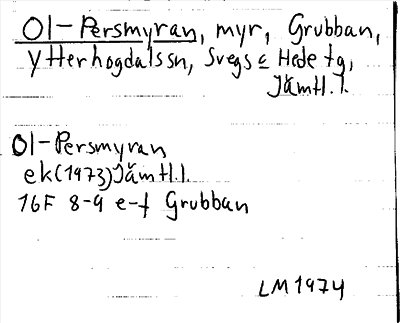 Ol-Persmyran, myr, Grubban,
Ytterhogdals sn, Svegs o Hede tg,
Jämtl. l.
Ol-Persmyran
ek (1973) Jämtl. l.
16F 8-9 e-f Grubban
LM 1974